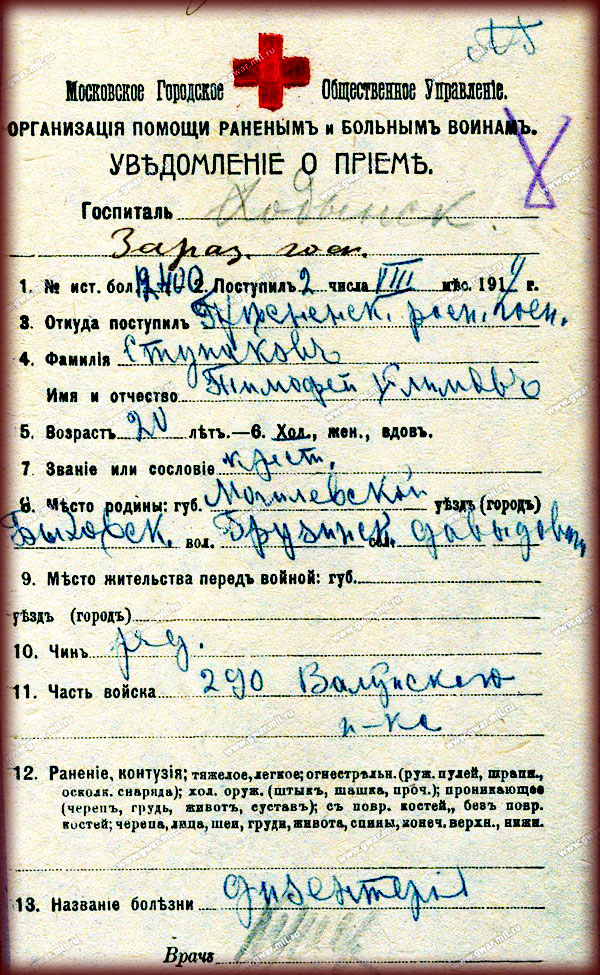 Московское Городское Общественное Управленіе.
ОРГАНИЗАЦІЯ ПОМОЩИ РАНЕНЫМЪ и БОЛЬНЫМЪ ВОИНАМЪ.
УВѢДОМЛЕНІЕ О ПРІЕМѢ.
Госпиталь Ходынск.
Зараз. гос.
1. № ист. бол. 2. Поступил 2 числа VIII мѣс. 191 г.
3. Откуда поступил расп. госп.
4. Фамилія Ступаковъ
Имя и отчество Тимофей Климовъ
5. Возрастъ 20 лѣтъ.—6. Хол., жен., вдовъ.
7. Званіе или сословіе крест.
8. Мѣсто родины: губ. Могилевской уѣздъ (городъ)
Быховск. вол. сел.
9. Мѣсто жительства передъ войной: губ.
уѣздъ (городъ)
10. Чинъ ряд.
11. Часть войска 290 Валуйскаго
п-ка
12. Раненіе, контузія; тяжелое, легкое; огнестрѣльн. (руж. пулей, шрапн.,
осколк. снаряда); хол. оруж. (штыкъ, шашка, проч.); проникающее
(черепъ, грудь, животъ, суставъ); съ повр. костей,, безъ повр.
костей; черепа, лица, шеи, груди, живота, спины, конеч. верхн., нижн.
13. Названіе болѣзни дизентерія
Врачъ
www.gwar.mil.ru